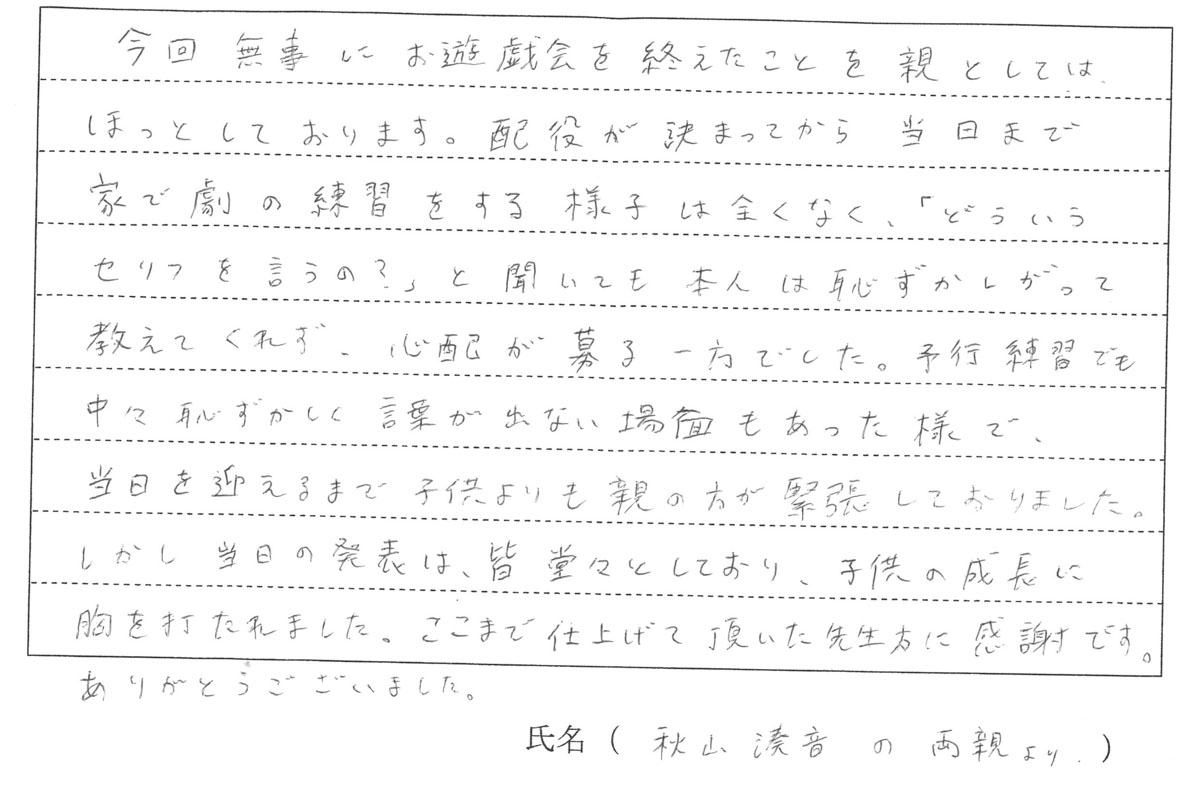 今回 無事に お遊戯会を 終えたことを 親としては
ほっとしております。配役が 決まってから 当日まで
家で劇の練習をする様子は全くなく、「どういう
セリフを言うの?」と聞いても本人は恥ずかしがって
教えてくれず、心配が募る一方でした。予行練習でも
中々恥ずかしく言葉が出ない場面もあった様で、
当日を迎えるまで子供よりも親の方が緊張しておりました。
しかし当日の発表は、皆堂々としており、子供の成長に
胸を打たれました。ここまで仕上げて頂いた先生方に感謝です。
ありがとうございました。
氏名(秋山湊音の両親より.)